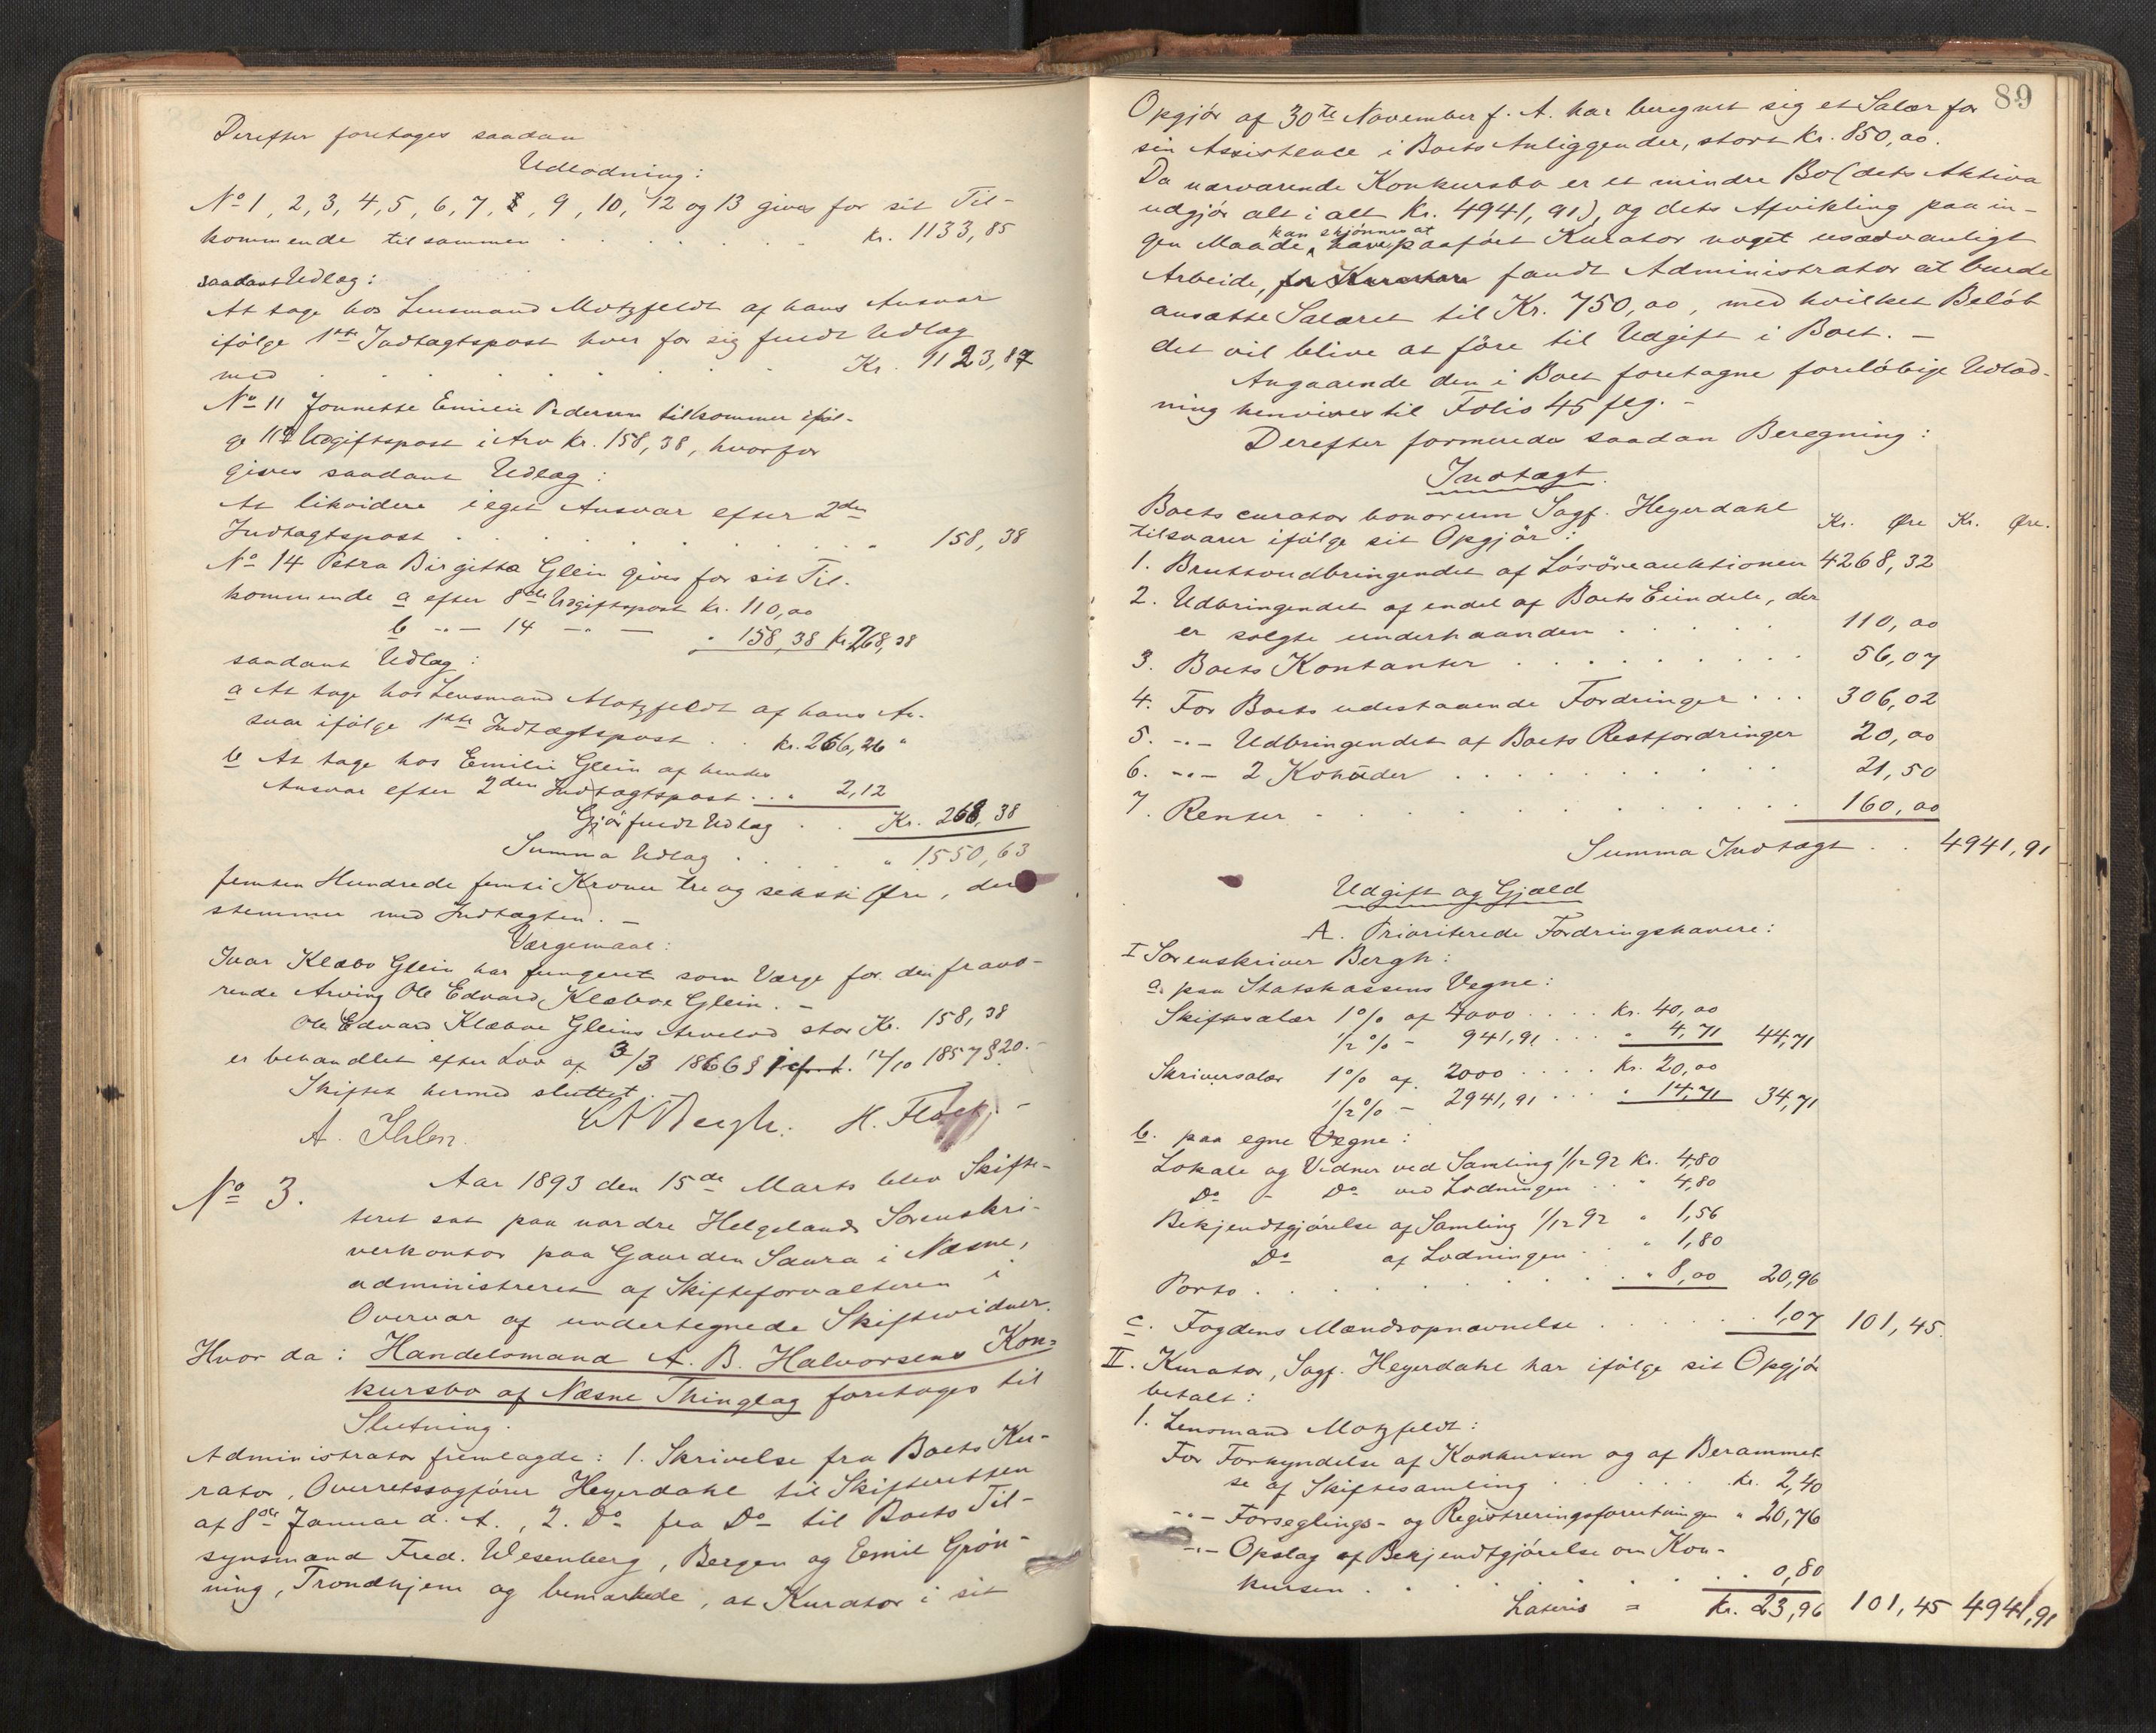 Derefter foretoges saadan
Udlodning:
No 1, 2, 3, 4, 5, 6, 7, 8, 9, 10, 12 og 13 gives for sit Til-
kommende tilsammen . . . . . . . kr. 1133,85
saadant Udlæg:
At tage hos Lensmand Motzfeldt af hans Ansvar
ifølge 1ste Indtægtspost hver for sig fuldt Udlæg
med . . . . . . . . . Kr. 1123,87
No 11 Jonnette Emilie Pedersen tilkommer iføl-
ge 11te Udgiftspost i Arv kr. 158,38, hvorfor
gives saadant Udlæg:
At likvidere i eget Ansvar efter 2den
Indtægtspost . . . . . . . . " 158,38
No 14 Petra Birgitta Glein gives for sit Til-
kommende a efter 8de Udgiftspost kr. 110,00
b -"- 14 -"- — " 158,38 kr. 268,38
saadant Udlæg:
a At tage hos Lensmand Motzfeldt af hans An-
svar ifølge 1ste Indtægtspost . . kr. 266,26 "
b At tage hos Emilie Glein af hendes
Ansvar efter 2den Indtægtspost . . " 2,12
Gjør fuldt Udlæg . . Kr. 268,38
Summa Udlæg . . . . " 1550,63
femten Hundrede femti Kroner tre og seksti Øre, der
stemmer med Indtægten. —
Værgemaal:
Ivar Klæbo Glein har fungeret som Værge for den fravæ-
rende Arving Ole Edvard Klæboe Glein. —
Ole Edvard Klæboe Gleins Arvelod stor Kr. 158,38
er behandlet efter Lov af 3/3 1866 § 1 cfr. L. 12/10 1857 § 20. —
Skiftet hermed sluttet. —
A. Ihlen. Bergh. H. Flack. —
No 3. Aar 1893 den 15de Marts blev Skifte-
teret sat paa nordre Helgelands Sorenskri-
verkontor paa Gaarden Saura i Næsne,
administreret af Skifteforvalteren i
Overvær af undertegnede Skiftevidner.
Hvor da: Handelsmand A. B. Halvorsens Kon-
kursbo af Næsne Thinglag foretoges til
Slutning.
Administrator fremlagde: 1. Skrivelse fra Boets Ku-
rator, Overretssagfører Heyerdahl til Skifteretten
af 8de Januar d. A., 2. Do fra Do til Boets Til-
synsmænd Fred. Wesenberg, Bergen og Emil Grøn-
ning, Trondhjem og bemærkede, at Kurator i sit
89
Opgjør af 30te November f. A. har beregnet sig et Salær for
sin Assistence i Boets Anliggender, stort Kr. 850,00.
Da nærværende Konkursbo er et mindre Bo (dets Aktiva
udgjør alt i alt Kr. 4941,91), og dets Afvikling paa in-
kan skjønnes at
gen Maade have paaført Kurator noget usædvanligt
Arbeide, for Kurator fandt Administrator at burde
ansætte Salæret til Kr. 750,00, med hvilket Beløb
det vil blive at føre til Udgift i Boet. —
Angaaende den i Boet foretagne foreløbige Udlod-
ning henvises til Folio 45 flg. —
Derefter formeredes saadan Beregning:
Indtægt.
Boets curator bonorum Sagf. Heyerdahl
tilsvarer ifølge sit Opgjør: Kr. Øre Kr. Øre.
1. Bruttoudbringendet af Løsøreauktionen 4268,32
2. Udbringendet af endel af Boets Eiendele, der
er solgte underhaanden . . . . . 110,00
3. Boets Kontanter . . . . . . . . 56,07
4. For Boets udestaaende Fordringer . . . 306,02
5. -"- Udbringendet af Boets Restfordringer 20,00
6. -"- 2 Kohuder . . . . . . . . 21,50
7. Renter . . . . . . . . . . 160,00
Summa Indtægt . . 4941,91
Udgift og Gjæld
A. Prioriterede Fordringshavere:
I Sorenskriver Bergh:
a. paa Statskassens Vegne:
Skiftesalær 1% af 4000 . . . . Kr. 40,00
1/2% - 941,91 . . . " 4,71 44,71
Skriversalær 1% af 2000 . . . . Kr. 20,00
1/2% - 2941,91 . . . " 14,71 34,71
b. paa egne Vegne:
Lokale og Vidner ved Samling 1/12 92 Kr. 4,80
Do - Do ved Lodningen . . " 4,80
Bekjendtgjørelse af Samling 1/12 92 " 1,56
Do af Lodningen . . " 1,80
Porto . . . . . . . . . " 8,00 20,96
c. Fogdens Mændsopnævnelse . . . . . . 1,07 101,45.
II. Kurator, Sagf. Heyerdahl har ifølge sit Opgjør
betalt:
1. Lensmand Motzfeldt:
For Forkyndelse af Konkursen og af Berammel-
se af Skiftesamling . . . . . kr. 2,40
-"- Forseglings- og Registreringsforretningen " 20,76
-"- Opslag af Bekjendtgjørelse om Kon-
kursen . . . . . . . . . 0,80
Lateris = Kr. 23,96 101,45 4941,91